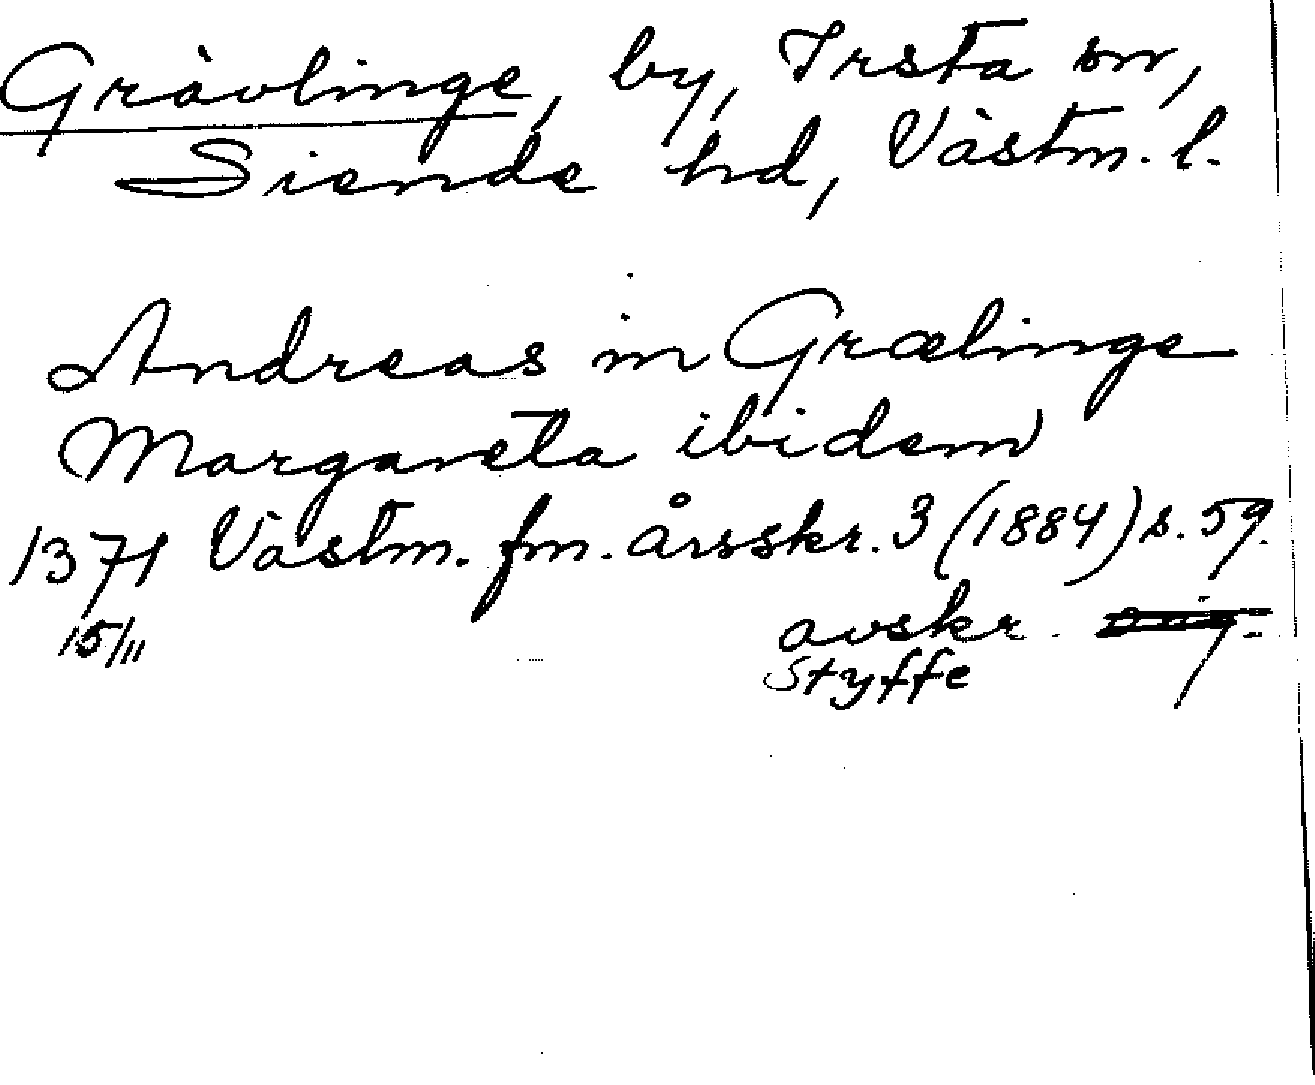 Grävlinge, by, Irsta sn,
Siende hd, Västm. l.
Andreas in Grælinge
Margareta ibidem
1371 Västm. fm. årsskr. 3 (1884) s. 59.
15/11 avskr.
Styffe